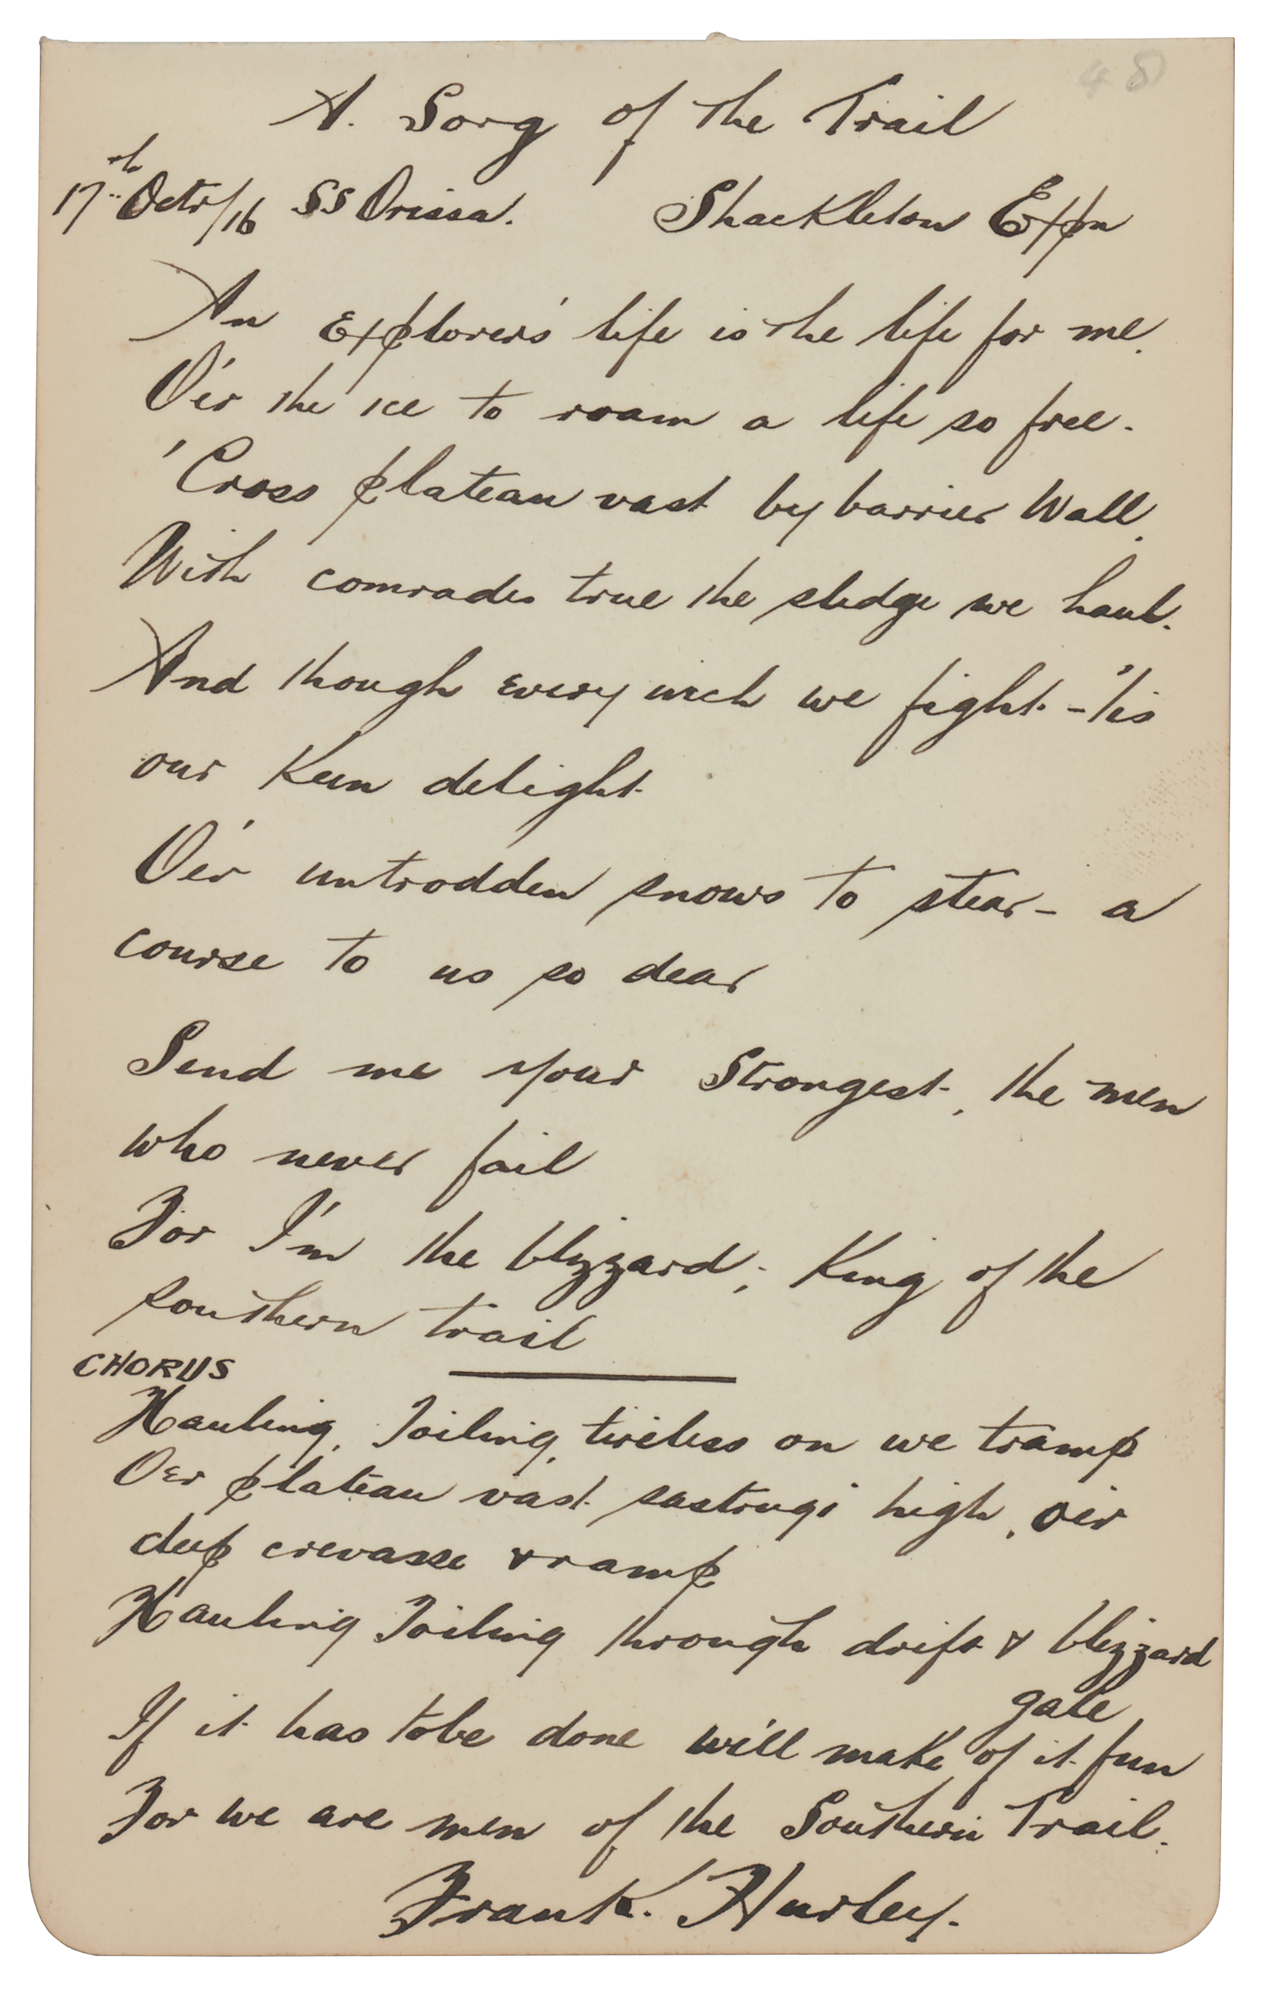 48
A. Song of the Trail
17th Octr/16 SS Orissa. Shackleton Expn
An Explorer's life is the life for me.
O'er the ice to roam a life so free.
'Cross plateau vast by barrier Wall.
With comrades true the sledge we haul.
And though every inch we fight - 'tis
our Keen delight
O'er untrodden snows to stear - a
course to us so dear
Send me your Strongest, the men
who never fail
For I'm the blizzard; King of the
southern trail
CHORUS
Hauling, Toiling, tireless on we tramp
Oer plateau vast sastrugi high, o'er
deep crevasse & ramp
Hauling Toiling through drift & blizzard
gale
If it has tobe done we'll make of it fun
For we are men of the Southern Trail.
Frank. Hurley.